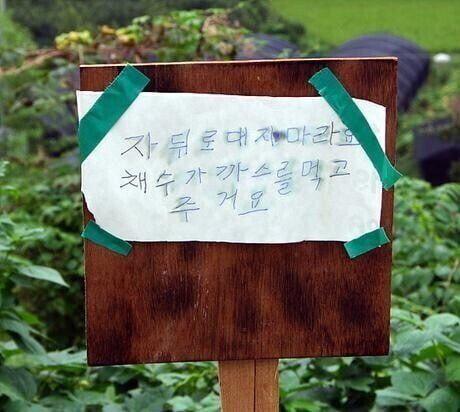 자 뒤로대지마라요
채수가 까스를 먹고
주거요